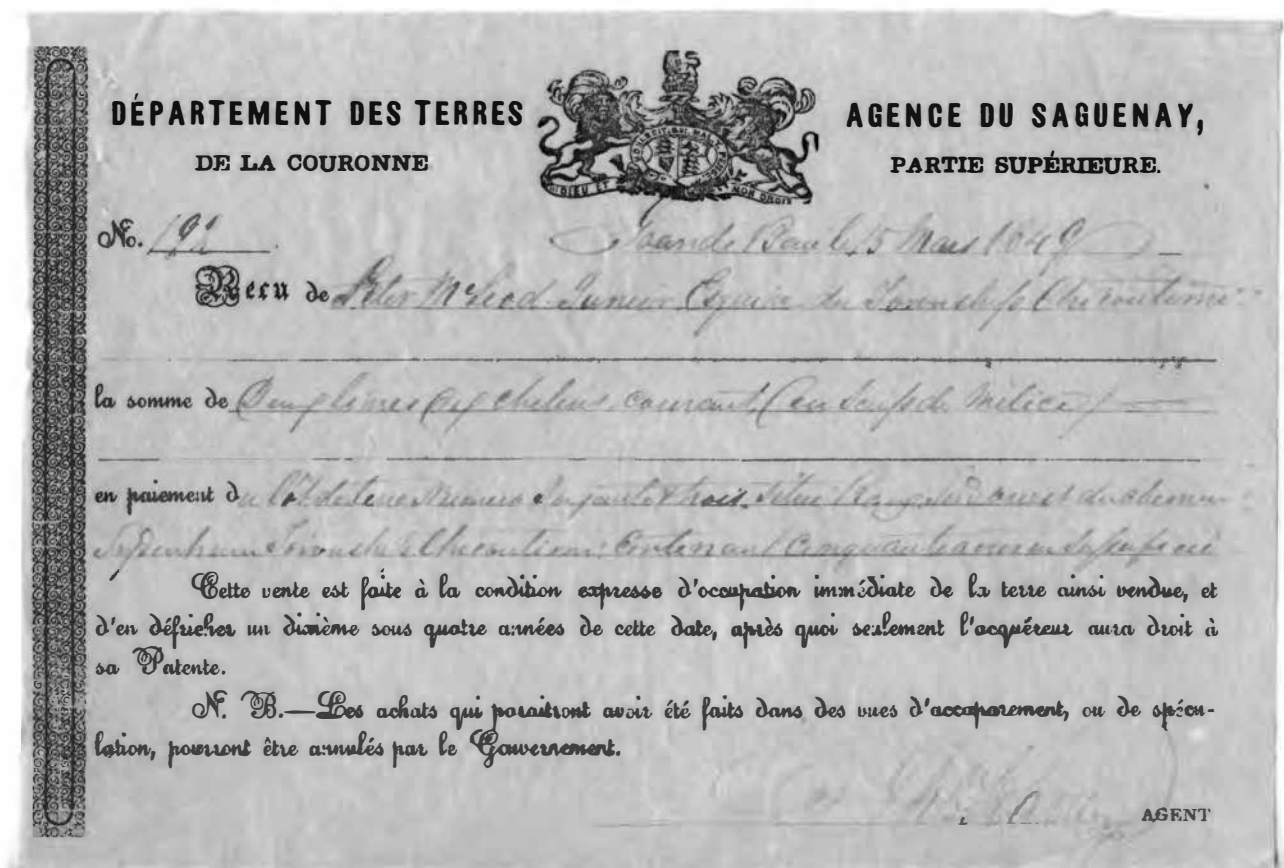 DÉPARTEMENT DES TERRES
DE LA COURONNE
AGENCE DU SAGUENAY,
PARTIE SUPÉRIEURE.
DIEU ET MON DROIT
No. 192
Grande Baie le 15 Mars 1849
Reçu de Peter McLeod Junior Esquire du Township Chicoutimi
la somme de Cinq livres dix chelins courant (en Scrips de Milice)
en paiement du lot de terre Numero cinquante trois
Township Chicoutimi Contenant Cinquante acres en superficie
Cette vente est faite à la condition expresse d'occupation immédiate de la terre ainsi vendue, et
d'en défricher un dixième sous quatre années de cette date, après quoi seulement l'acquéreur aura droit à
sa Patente.
N. B.—Les achats qui paraitront avoir été faits dans des vues d'accaparement, ou de spécu-
lation, pourront être annulés par le Gouvernement.
AGENT